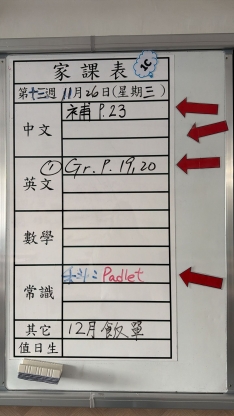 家課表 1C
第十三週 11月26日(星期三)
中文 補 P.23
英文 ① Gr. P. 19, 20
數學
常識 Padlet
其它 12月飯單
值日生